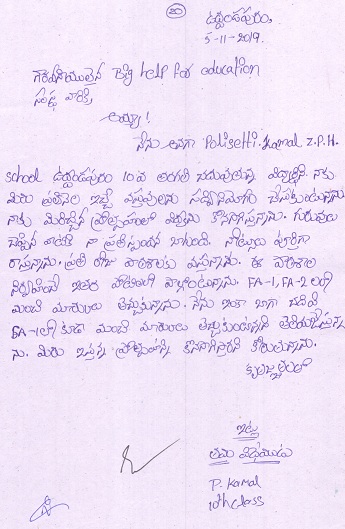 20
ఉద్దండపురం,
5-11-2019.
గౌరవనీయులైన Big help for education
సంస్థ వారికి,
అయ్యా!
నేను అనగా Polisetti. Kamal Z.P.H.
school ఉద్దండపురం 10వ తరగతి చదువుతున్న విద్యార్థిని. నాకు
మీరు ప్రతినెల ఇచ్చే వస్తువులను సద్వినియోగం చేసుకుంటున్నాను
నాకు మీరిచ్చిన ప్రోత్సాహంతో విద్యను కొనసాగిస్తున్నాను. గురువులు
చెప్పిన వాటికి నా ప్రతిస్పందన బాగుంది. నోట్సులు పూర్తిగా
రాస్తున్నాను. ప్రతి రోజు పాఠశాలకు వస్తున్నాను. ఈ పాఠశాల
నిర్వహించే ఇతర పోటీలలో పాల్గొంటున్నాను. FA-1, FA-2 లలో
మంచి మార్కులు తెచ్చుకున్నాను. నేను ఇంకా బాగా చదివి
SA-1లో కూడా మంచి మార్కులు తెచ్చుకుంటానని తెలియజేస్తున్నా
ను. మీరు ఇస్తున్న ప్రోత్సాహాన్ని కొనసాగించాలని కోరుతున్నాను.
కృతజ్ఞతలతో
ఇట్లు
తమ విధేయుడు
P. Kamal
10th class